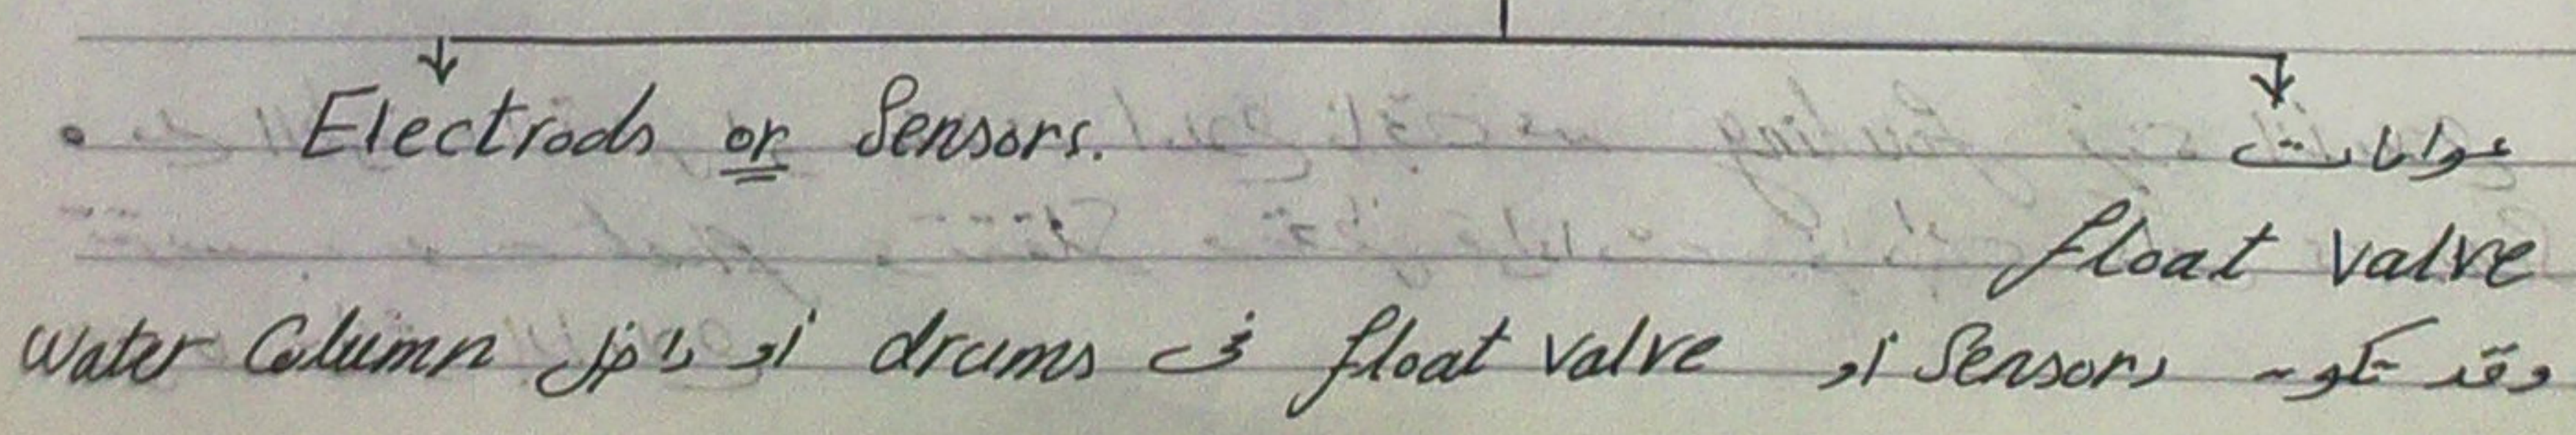 Electrods or Sensors.
عوامات
float valve
وقد تكون Sensors أو float valve في drums أو داخل Water Column